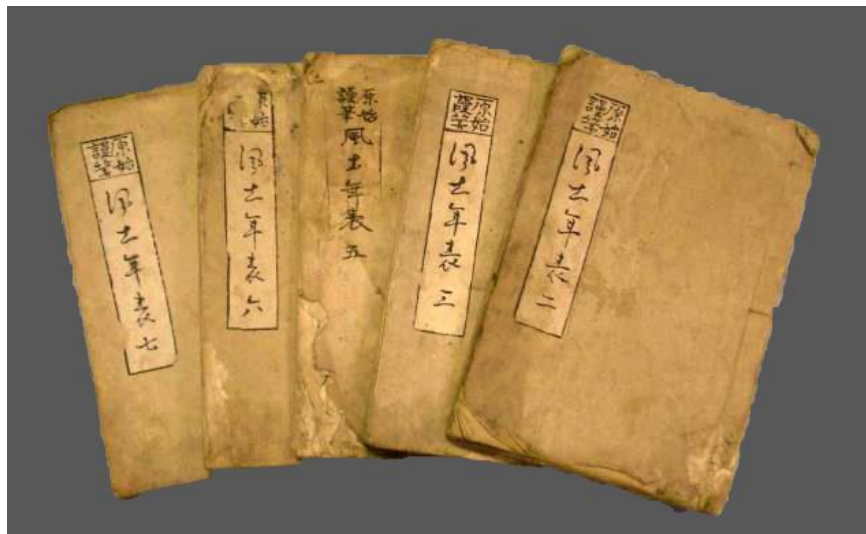 原始
謾筆
風土年表 二
原始
謾筆
風土年表 三
原始
謾筆
風土年表 五
始
風土年表 六
原始
謾筆
風土年表 七